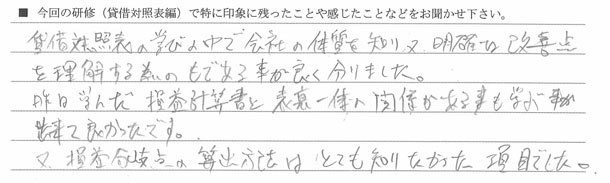 ■ 今回の研修（貸借対照表編）で特に印象に残ったことや感じたことなどをお聞かせ下さい。
貸借対照表の学びの中で会社の体質を知り又、明確な改善点
を理解する為のもである事が良く分りました。
昨日学んだ損益計算書と表裏一体の関係がある事も学ぶ事が
出来て良かったです。
又、損益分岐点の算出方法はとても知りたかった項目でした。